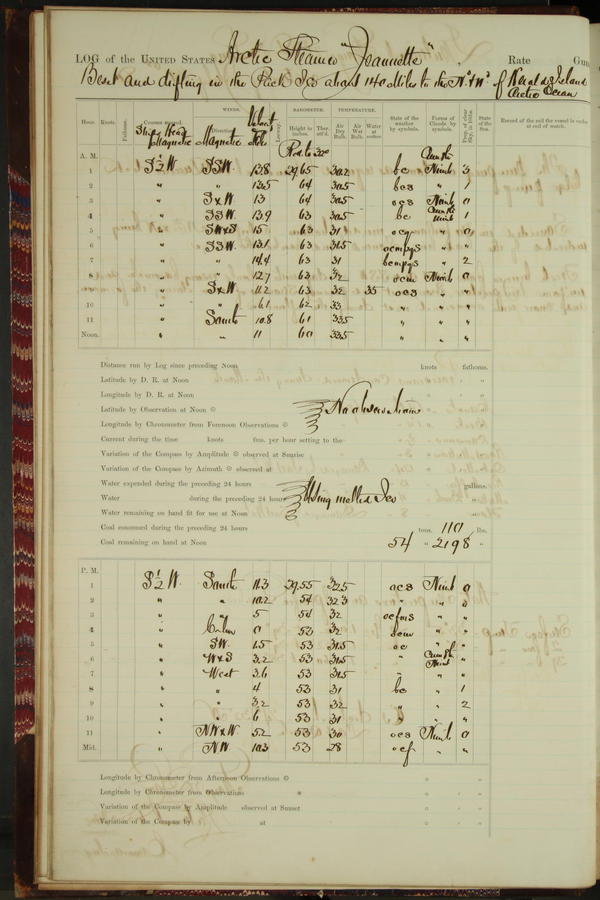 LOG of the UNITED STATES Arctic Steamer "Jeannette", Rate Gun
Beset and drifting in the Pack Ice about 140 Miles to the Nd & Wd of Herald Island
Arctic Ocean
WINDS. BAROMETER. TEMPERATURE.
Hour. Knots. Fathoms. Courses steered. Direction. Leeway. Height in inches. Ther. att'd. Air Dry Bulb. Air Wet Bulb. Water at surface. State of the weather by symbols. Forms of Clouds by symbols. Prop. of clear Sky, in 10ths. State of the Sea. Record of the sail the vessel is under at end of watch.
Ship's Head Magnetic Magnetic Velocity
A. M.
1 S ½ W. SSW. 12.8 29.65 30.2 bc 3
2 " " 13.5 64 30.5 bcs " 1
3 " S x W 13 64 30.5 ocs Nimb 0
4 " SSW. 13.9 63 30.5 bc 1
5 " SWxS 15 63 31 " 0
6 " SSW. 13.1 63 31.5 " "
7 " " 14.4 63 31 " 2
8 " " 12.7 63 32 ocm Nimb 0
9 " S x W 11.2 63 32 35 ocs " "
10 " " 6.1 62 33 " " "
11 " South 10.8 61 33.5 " " "
Noon. " " 11 60 33.5 " " "
Distance run by Log since preceding Noon knots fathoms.
Latitude by D. R. at Noon
Longitude by D. R. at Noon
Latitude by Observation at Noon No observations
Longitude by Chronometer from Forenoon Observations
Current during the time knots fms. per hour setting to the
Variation of the Compass by Amplitude observed at Sunrise
Variation of the Compass by Azimuth observed at
Water expended during the preceding 24 hours gallons.
Water during the preceding 24 hours Using melted Ice
Water remaining on hand fit for use at Noon
Coal consumed during the preceding 24 hours tons. 110 lbs.
Coal remaining on hand at Noon 54 " 2198 "
P. M.
1 S ½ W. South 11.3 29.55 32.5 ocs Nimb 0
2 " " 10.2 54 32.3 " " "
3 " " 5 54 32 " "
4 " Calm 0 53 32 ocm " "
5 " SW. 1.5 53 31.5 oc " "
6 " WxS 3.2 53 31.5 " "
7 " West 3.6 53 31.5 " " "
8 " " 4 53 31 bc " 1
9 " " 3.2 53 32 " " 2
10 " " 6 53 31 " " "
11 " NWxW 5.2 53 30 ocs Nimb 0
Mid. " NW 10.3 53 28 ocf " "
Longitude by Chronometer from Afternoon Observations
Longitude by Chronometer from Observations
Variation of the Compass by Amplitude observed at Sunset
Variation of the Compass by at